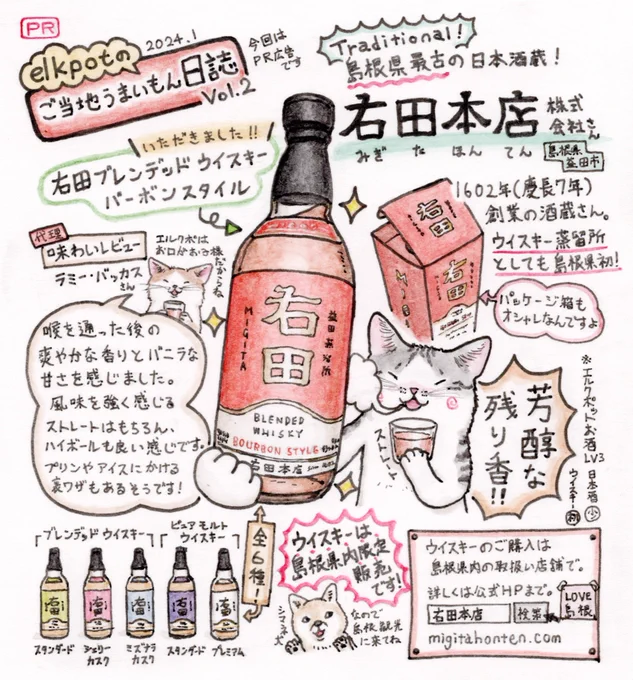 PR
elkpotの
ご当地うまいもん日誌
Vol.2
2024.1
今回は
PR広告
です
Traditional!
島根県最古の日本酒蔵!
右田本店
株式
会社さん
みぎたほんてん
島根県
益田市
いただきました!!
右田ブレンデッドウイスキー
バーボンスタイル
1602年(慶長7年)
創業の酒蔵さん。
ウイスキー蒸留所
としても島根県初!
パッケージ箱も
オシャレなんですよ
代理
味わいレビュー
ラミー・バッカス
さん
エルクポは
お口がお子様
だからね
喉を通った後の
爽やかな香りとバニラな
甘さを感じました。
風味を強く感じる
ストレートはもちろん、
ハイボールも良い感じです。
プリンやアイスにかける
裏ワザもあるそうです!
右田
MIGITA
益田蒸留所
BLENDED
WHISKY
BOURBON STYLE
右田本店
右田
右田
ストレート
芳醇な
残り香!!
※エルクポットお酒LV3
日本酒 少
ウイスキー 初
ブレンデッドウイスキー
ピュアモルト
ウイスキー
スタンダード
シェリー
カスク
ミズナラ
カスク
スタンダード
プレミアム
全6種!
ウイスキーは
島根県内限定
販売
です!
シマネ犬
なので
島根観光
に来てね
ウイスキーのご購入は
島根県内の取扱い店舗で。
詳しくは公式HPまで。
右田本店
検索
migitahonten.com
LOVE
島根